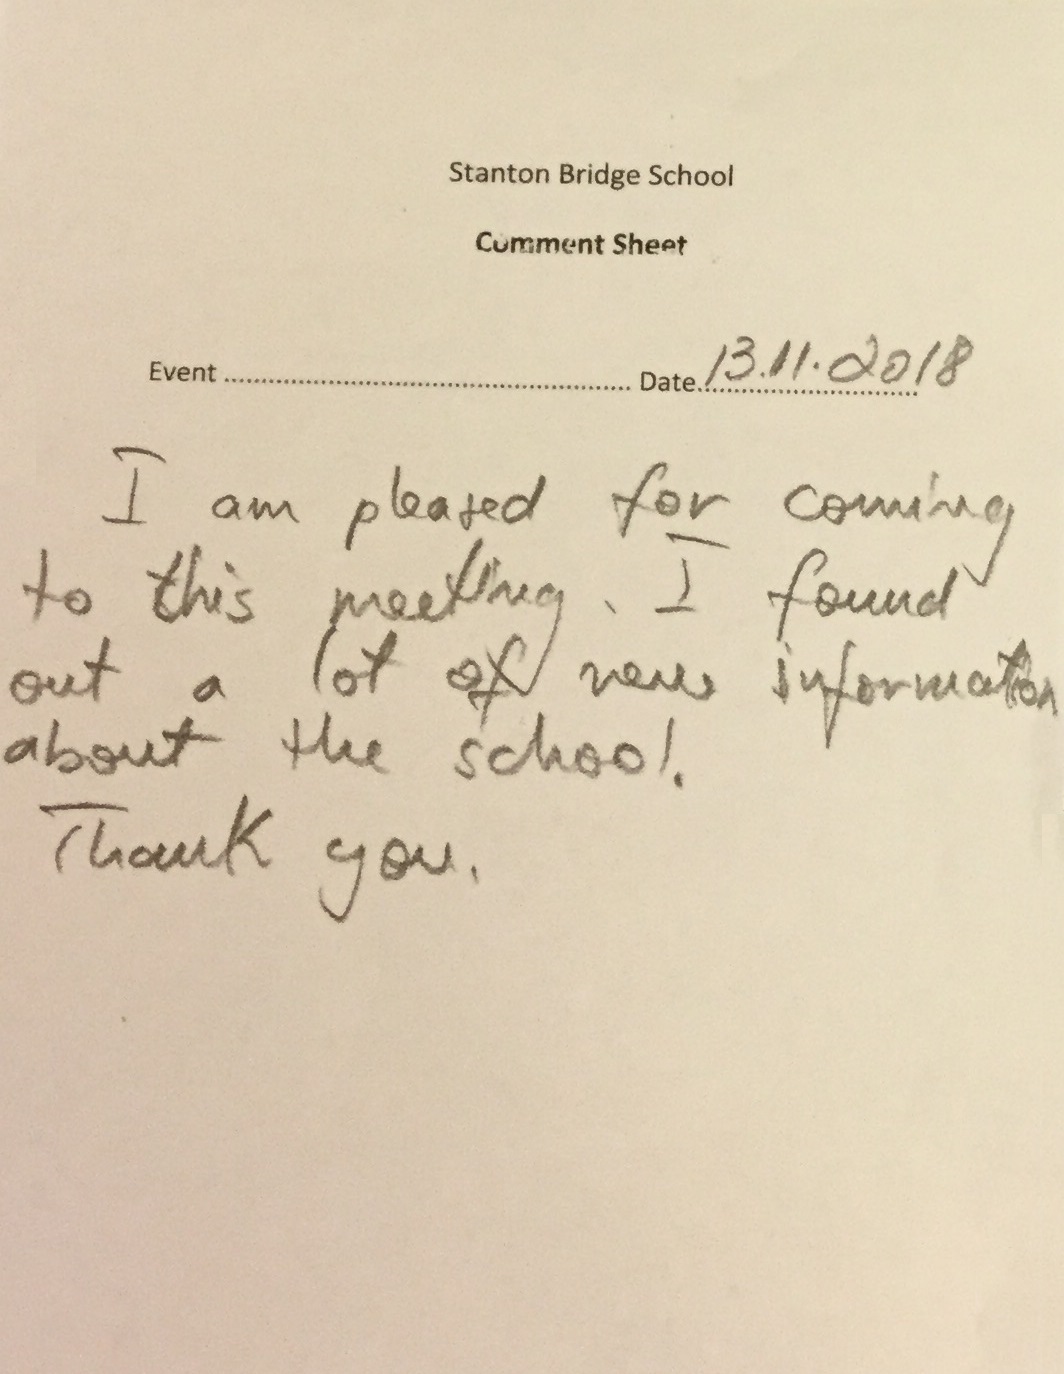 Stanton Bridge School
Comment Sheet
Event ........................................................ Date..............................13.11.2018
I am pleased for coming
to this meeting. I found
out a lot of new information
about the school.
Thank you.